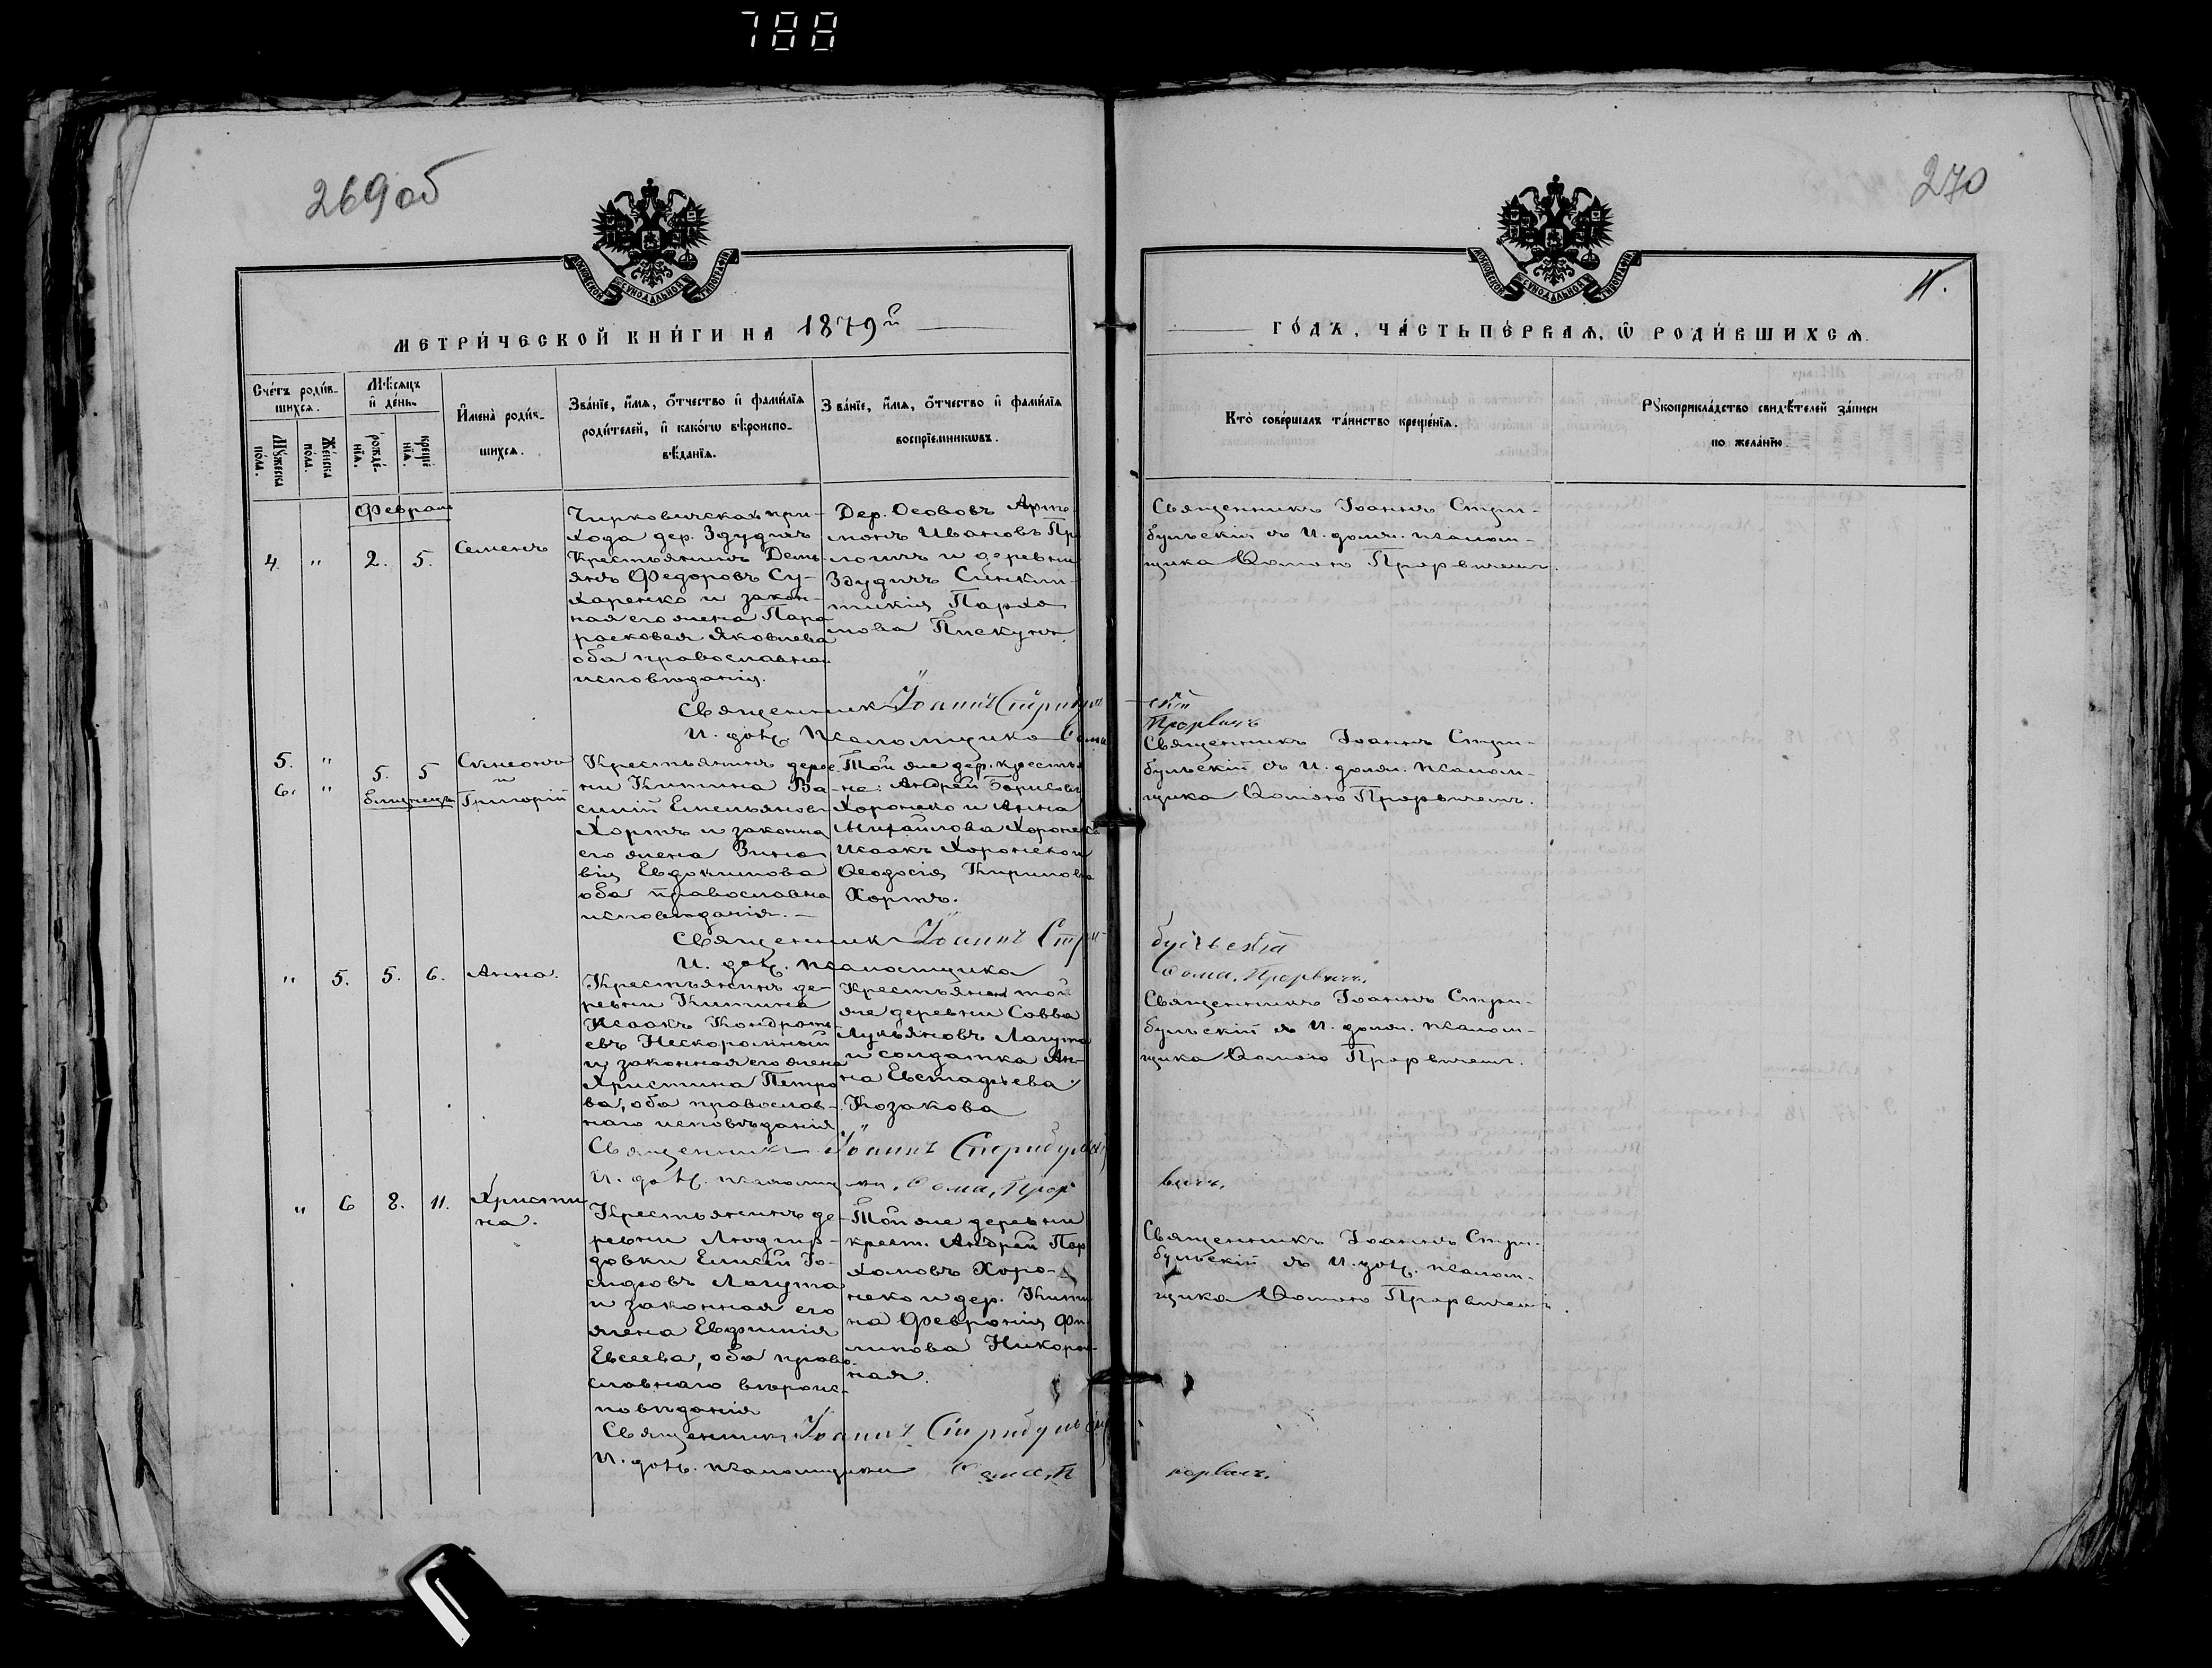 788
269об
270
11.
МОСКОВСКОЙ СѴНОДАЛЬНОЙ ТИПОГРАФІИ
МОСКОВСКОЙ СѴНОДАЛЬНОЙ ТИПОГРАФІИ
МЕТРИ́ЧЕСКОЙ КНИ́ГИ НА 1879й
ГО́ДЪ, ЧА́СТЬ ПЕ́РВАЯ, Ѿ РОДИ́ВШИХСѦ.
Сче́тъ роди́в-
шихсѧ.
Мꙋ́жеска по́ла.
Же́нска по́ла.
Мѣ́сяцъ
и҆ де́нь.
рожде́-
нїѧ.
креще́-
нїѧ.
И҆мена̀ роди́в-
шихсѧ.
Зва́нїе, и҆́мѧ, ѻ҆́тчество и҆ фами́лїѧ
роди́телей, и҆ како́гѡ вѣроиспо-
вѣ́данїѧ.
Зва́нїе, и҆́мѧ, ѻ҆́тчество и҆ фами́лїѧ
воспрїе́мникѡвъ.
Кто̀ соверша́лъ та́инство креще́нїѧ.
Рꙋкоприкла́дство свидѣ́телей за́писи
по жела́нїю.
Февраль
4. " 2. 5. Семенъ
Чирковичскаго при-
хода дер. Здудичъ
Крестьянинъ Демь-
янъ Федоровъ Су-
харенко и закон-
ная его жена Пара
расковея Яковлева
оба православнаго
исповѣданія.
Дер. Особовъ Арте-
монъ Ивановъ
и деревни
Здудичъ Синкли-
тикія Пархо
мова Пискунъ.
Священникъ Іоаннъ Стри-
бульскій съ И. долж. псалом-
щика Ѳомою Прорвичемъ.
Священникъ Іоаннъ Стрибуль
скій
И. долж. Псаломщика Ѳома
Прорвичъ
5. " 5. 5 Симеонъ
и
6. " близнецы Григорій
Крестьянинъ дерев
ни Китина Ва-
силій Емельяновъ
Хортъ и законна
его жена Зино
вія Евдокимова
оба православна
исповѣданія.—
Той же дер. крестья
не: Андрей Борисовъ
Хоронеко и Анна
Михайлова Хоронеко
Исаакъ Хоронеко и
Ѳеодосія Кирилова
Хортъ.
Священникъ Іоаннъ Стри-
бульскій съ И. долж. псалом-
щика Ѳомою Прорвичемъ.
Священникъ Іоаннъ Стри-
бульскій
И. долж. псаломщика
Ѳома Прорвичъ.
" 5. 5. 6. Анна.
Крестьянинъ де-
ревни Китина
Исаакъ Кондрать-
евъ Нескоромный
и законная его жена
Христина Петро
ва, оба православ-
наго исповѣданія
Крестьянинъ той
же деревни Савва
Лукьяновъ Лагута
и солдатка Ан-
на Евстафьева
Козакова
Священникъ Іоаннъ Стри-
бульскій съ И. долж. псалом-
щика Ѳомою Прорвичемъ.
Священникъ Іоаннъ Стрибульскій
И. долж. псаломщика Ѳома Прор
вичъ.
" 6 8. 11. Христи
на.
Крестьянинъ де-
ревни
довки Елисей Іо-
сифовъ Лагута
и законная его
жена Евфимія
Евсеева, оба право-
славнаго вѣроис-
повѣданія
Той же деревни
крест. Андрей Пар
хомовъ Хоро-
неко и дер. Кити
на Февронія Фи-
липова Никорон-
ная.
Священникъ Іоаннъ Стри-
бульскій съ И. долж. псалом-
щика Ѳомою Прорвичемъ.
Священникъ Іоаннъ Стрибульскій
И. долж. псаломщика Ѳома П
рорвичъ.